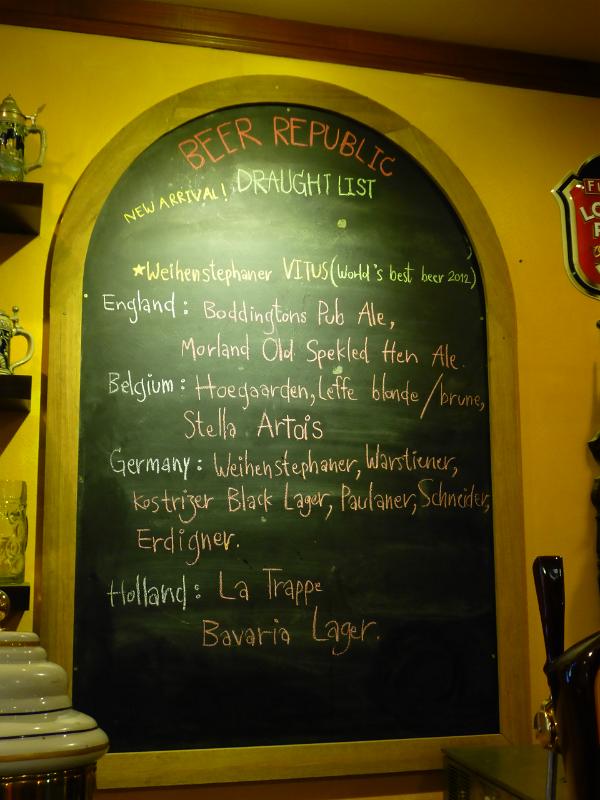 BEER REPUBLIC
DRAUGHT LIST
NEW ARRIVAL!
★Weihenstephaner VITUS (World's best beer 2012)
England: Boddingtons Pub Ale,
Morland Old Spekled Hen Ale.
Belgium: Hoegaarden, Leffe blonde/brune,
Stella Artois
Germany: Weihenstephaner, Warstiener,
Kostrizer Black Lager, Paulaner, Schneider,
Erdigner.
Holland: La Trappe
Bavaria Lager.